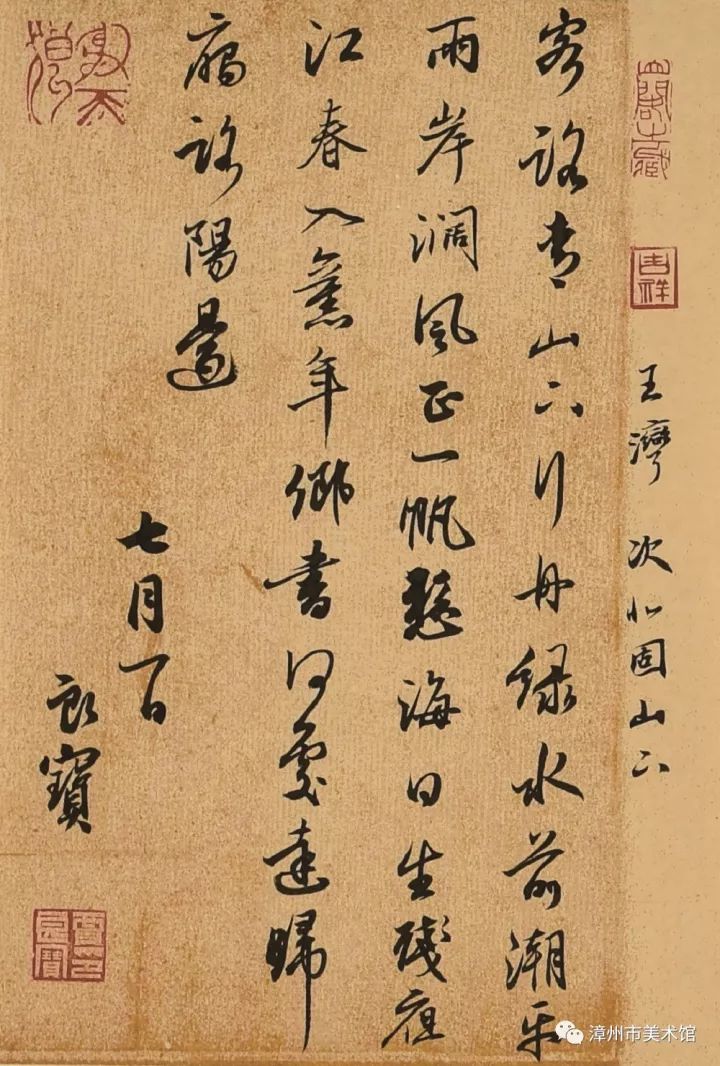 吉祥
王灣 次北固山下
客路青山下行舟綠水前潮平
兩岸濶風正一帆懸海日生殘夜
江春入舊年鄉書何處達歸
雁洛陽邊
七月一日
良寶
漳州市美术馆